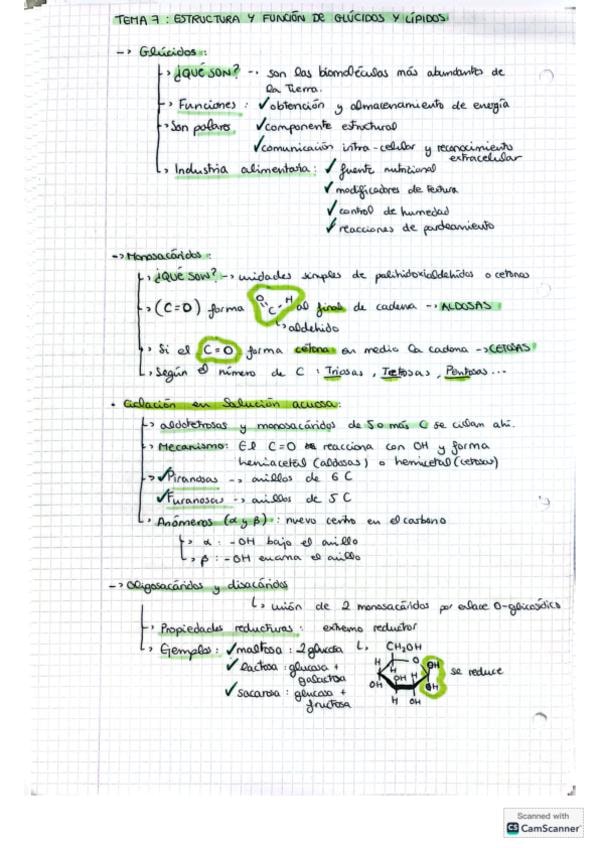 TEMA 7: ESTRUCTURA Y FUNCIÓN DE GLÚCIDOS Y LÍPIDOS
-> Glúcidos:
¿QUÉ SON? -> son las biomoléculas más abundantes de
la Tierra.
Funciones: ✓obtención y almacenamiento de energía
Son polares ✓componente estructural
✓comunicación intra-celular y reconocimiento
extracelular
Industria alimentaria: ✓fuente nutricional
✓modificadores de textura
✓control de humedad
✓reacciones de pardeamiento
-> Monosacáridos:
¿QUÉ SON? -> unidades simples de polihidoxialdehidos o cetonas
(C=O) forma O C H al final de cadena -> ALDOSAS
aldehido
Si el C=O forma cetona en medio la cadena -> CETOSAS
Según el número de C: Triosas, Tetrosas, Pentosas...
• Ciclación en solución acuosa:
aldotetrosas y monosacáridos de 5 o más C se ciclan ahí.
Mecanismo: El C=O reacciona con OH y forma
hemiacetal (aldosas) o hemicetal (cetosas)
✓Piranosas -> anillos de 6 C
✓Furanosas -> anillos de 5 C
Anómeros (α y β): nuevo centro en el carbono
α: -OH bajo el anillo
β: -OH encima el anillo
-> Oligosacáridos y disacáridos
unión de 2 monosacáridos por enlace O-glicosídico
Propiedades reductoras: extremo reductor
Ejemplos: ✓maltosa: 2 glucosa
✓lactosa: glucosa +
galactosa
✓sacarosa: glucosa +
fructosa
CH₂OH
H O OH
H
OH OH H OH
H OH
se reduce
Scanned with
CS CamScanner